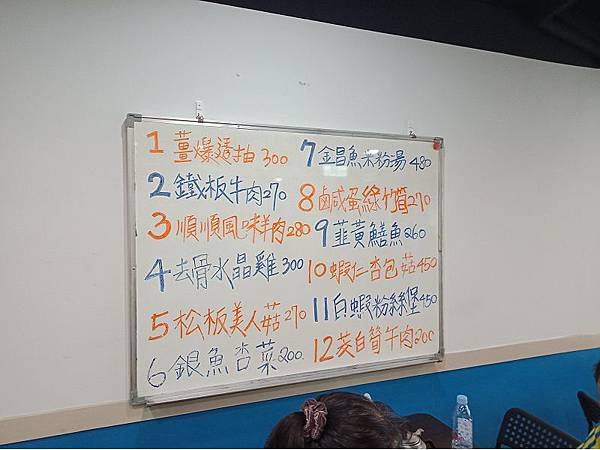 1 薑爆透抽 300
2 鐵板牛肉 270
3 順順風味羊肉 280
4 去骨水晶雞 300
5 松板美人菇 270
6 銀魚杏菜 200
7 金昌魚米粉湯 480
8 鹹蛋綠竹筍 270
9 韮黃鱔魚 260
10 蝦仁杏包菇 450
11 白蝦粉絲堡 450
12 茭白筍牛肉 200